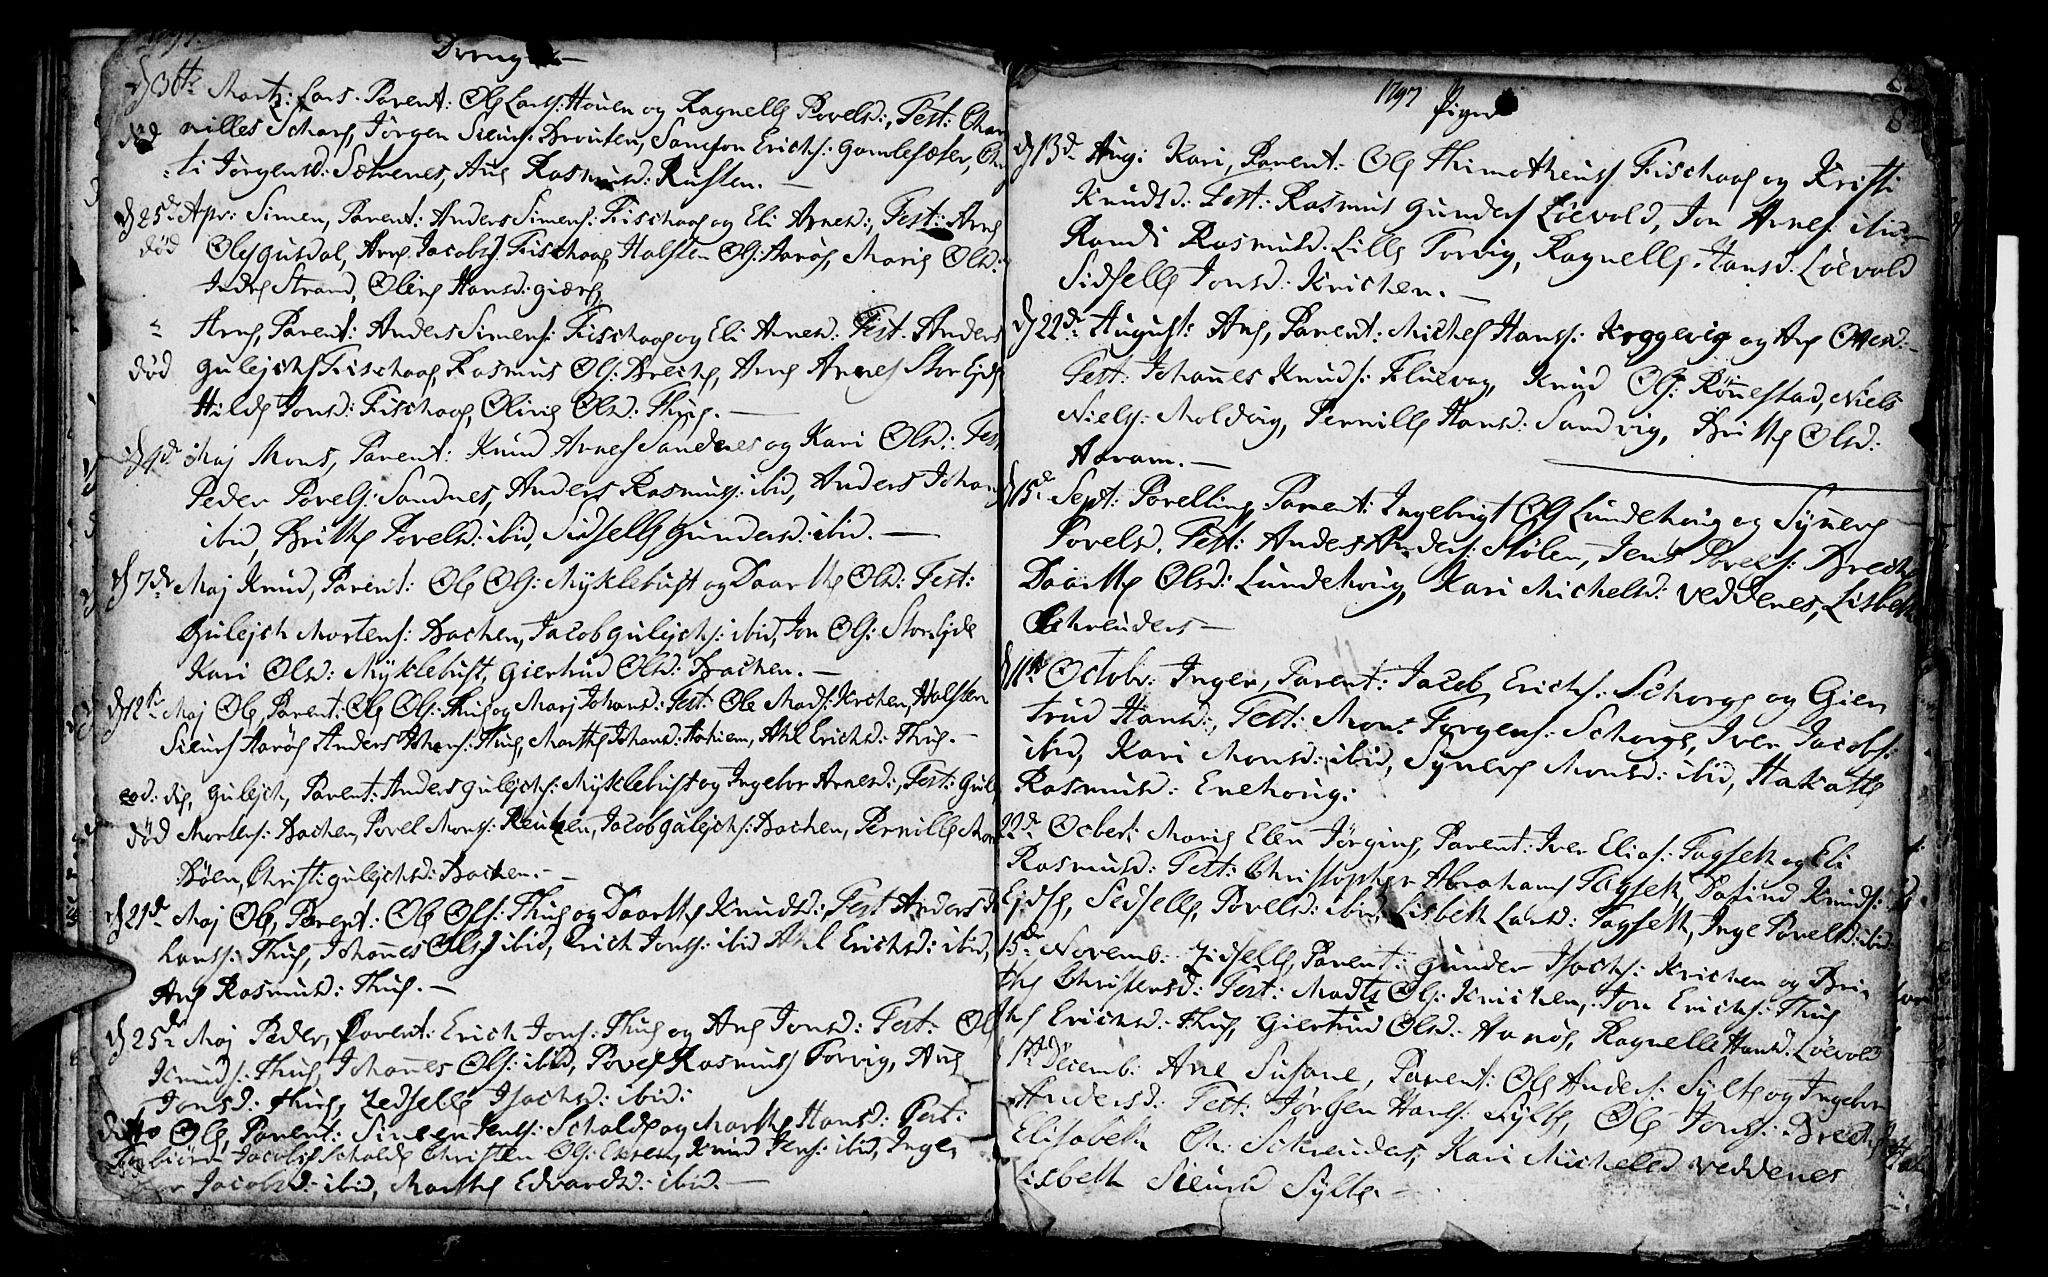 1797.
Drenge
d 30te Martz: Lars. Parent: Ole Larss: Houen og Ragnelle Povelsd:, Test: Cham
nilles Schars, Jörgen Siurs: Brouten, Samson Erichs: Gamlesæter, Chri
død
ti Jörgensd: Sætrenes, Ane Rasmusd: Rusten.
d 25de Apr: Simen, Parent: Anders Simens: Fischaae og Eli Arnesd:, Test: Arne
død Oles Gusdal, Arne Jacobs: Fischaae, Halsten Ols: Aarøe, Marie Olsd:
Indre Strand, Oline Hansd: Giære
Arne, Parent: Anders Simens: Fischaae og Eli Arnesd: Test. Anders
død Gulejchs Fischaae, Rasmus Ols: Breche, Arne Arnes Storejde
Hilde Jonsd: Fischaae, Oline Olsd: Thue.
d 4de Maj Mons, Parent: Knud Arnes Sandenes og Kari Olsd: Test
Peder Povels: Sandnes, Anders Rasmuss: ibid, Anders Johan
ibid, Britthe Povelsd: ibid, Sidselle Gundersd: ibid.
d 7de Maj Knud, Parent: Ole Ols: Myklebust og Daarthe Olsd: Test:
Gulejch Mortens: Bachen, Jacob Gulejchs: ibid, Jon Ols: Storejde
Kari Olsd: Myklebust, Giertrud Olsd: Bachen.
d 12te Maj Ole, Parent: Ole Ols: Thue og Marj Johansd: Test: Ole Mads: Krchen, Halsten
Siurs Aarøe, Anders Johans: Thue, Marthe Johansd: Hohiem, Ahl Erichsd: Thue.
eod: die, Gulejch, Parent: Anders Gulejchs: Myklebust og Ingebor Arnesd:, Test: Gulej
død Mortens: Bachen, Povel Mons: Reutzen, Jacob Gulejchs: Bachen, Pernille Mon
Böen, Christi Gulejchsd: Bachen.
d 21de Maj Ole, Parent: Ole Ols: Thue og Daarthe Knudsd: Test Anders
Larss: Thue, Johannes Ols: ibid, Erich Jonss: ibid Ahl Erichsd: ibid,
Ane Rasmusd: Thue.
d 25de Maj Peder, Parent: Erich Jons: Thue og Ane Jonsd: Test: Ole
Knuds: Thue, Johannes Ols: ibid, Povel Rasmuss Torvig, Ane
Jonsd: Thue, Zedselle Isachsd: ibid:
ditto Ole, Parent: Simen Jenss: Scholde og Marthe Hansd: Test:
Jacobs Scholde Christen Ols: Knud Jens: ibid, Inger
Jacobsd: ibid, Marthe Edvardsd: ibid.
1797 Piger
d 13de Aug: Kari, Parent: Ole Thimotheuss Fischaae og Kristi
Knudsd: Test: Rasmus Gunders Löevold, Jon Arnes: ibid
Randi Rasmusd: Lille Torvig, Ragnelle Hansd. Löevold
Sidselle Jonsd: Krichen.
d 22de August: Ane, Parent: Michel Hanss: Koggevig og Ane Ottesd:
Test: Johannes Knuds: Fluevog, Knud Ols: Rönnestad, Niels
Niels: Moldvig, Pernille Hansd: Sandvig, Britthe Olsd:
Aaram.
d 15de Sept: Povelline, Parent: Ingebrigt Ols Lundehoug og Synneve
Povelsd. Test: Anders Anders: Stölen, Jens Povels: Breche
Daarthe Olsd: Lundehoug, Kari Michelsd: Veddenes, Lisbeth
Schreuders
d 11te Octobr: Inger, Parent: Jacob Erichs: Schorge og Gier
trud Hansd:, Test: Mons Jörgens: Schorge, Iver Jacobs:
ibid, Kari Monsd: ibid, Synneve Monsd: ibid, Makalle
Rasmusd: Enehoug:
22de Octbr: Marie Elen Jörgine, Parent: Iver Elias: Fagseth og Eli
Rasmusd: Test: Christopher Abrahams Fagseth, Knuds:
Ejdse, Sedselle Povelsd: ibid, Lisbeth Larsd: Fagseth, Inge Povelsd: ibid.
15de Novemb: Zidselle, Parent: Gunder Isachs: Krichen og Bri
the Christensd: Test: Madts Ols: Krichen, Jon Erichs: Thue
Erichsd: Thue, Giertrud Olsd: Aarøe, Ragnelle Hansd. Löevold
17de Decemb: Ane Susane, Parent: Ole Anders: Sylte og Ingebor
Andersd: Test: Jörgen Hans: Sylte, Ole Jons: Breche
Elisabeth Ch: Schreuders, Kari Michelsd Veddenes
Lisbeth Siursd Sylte.